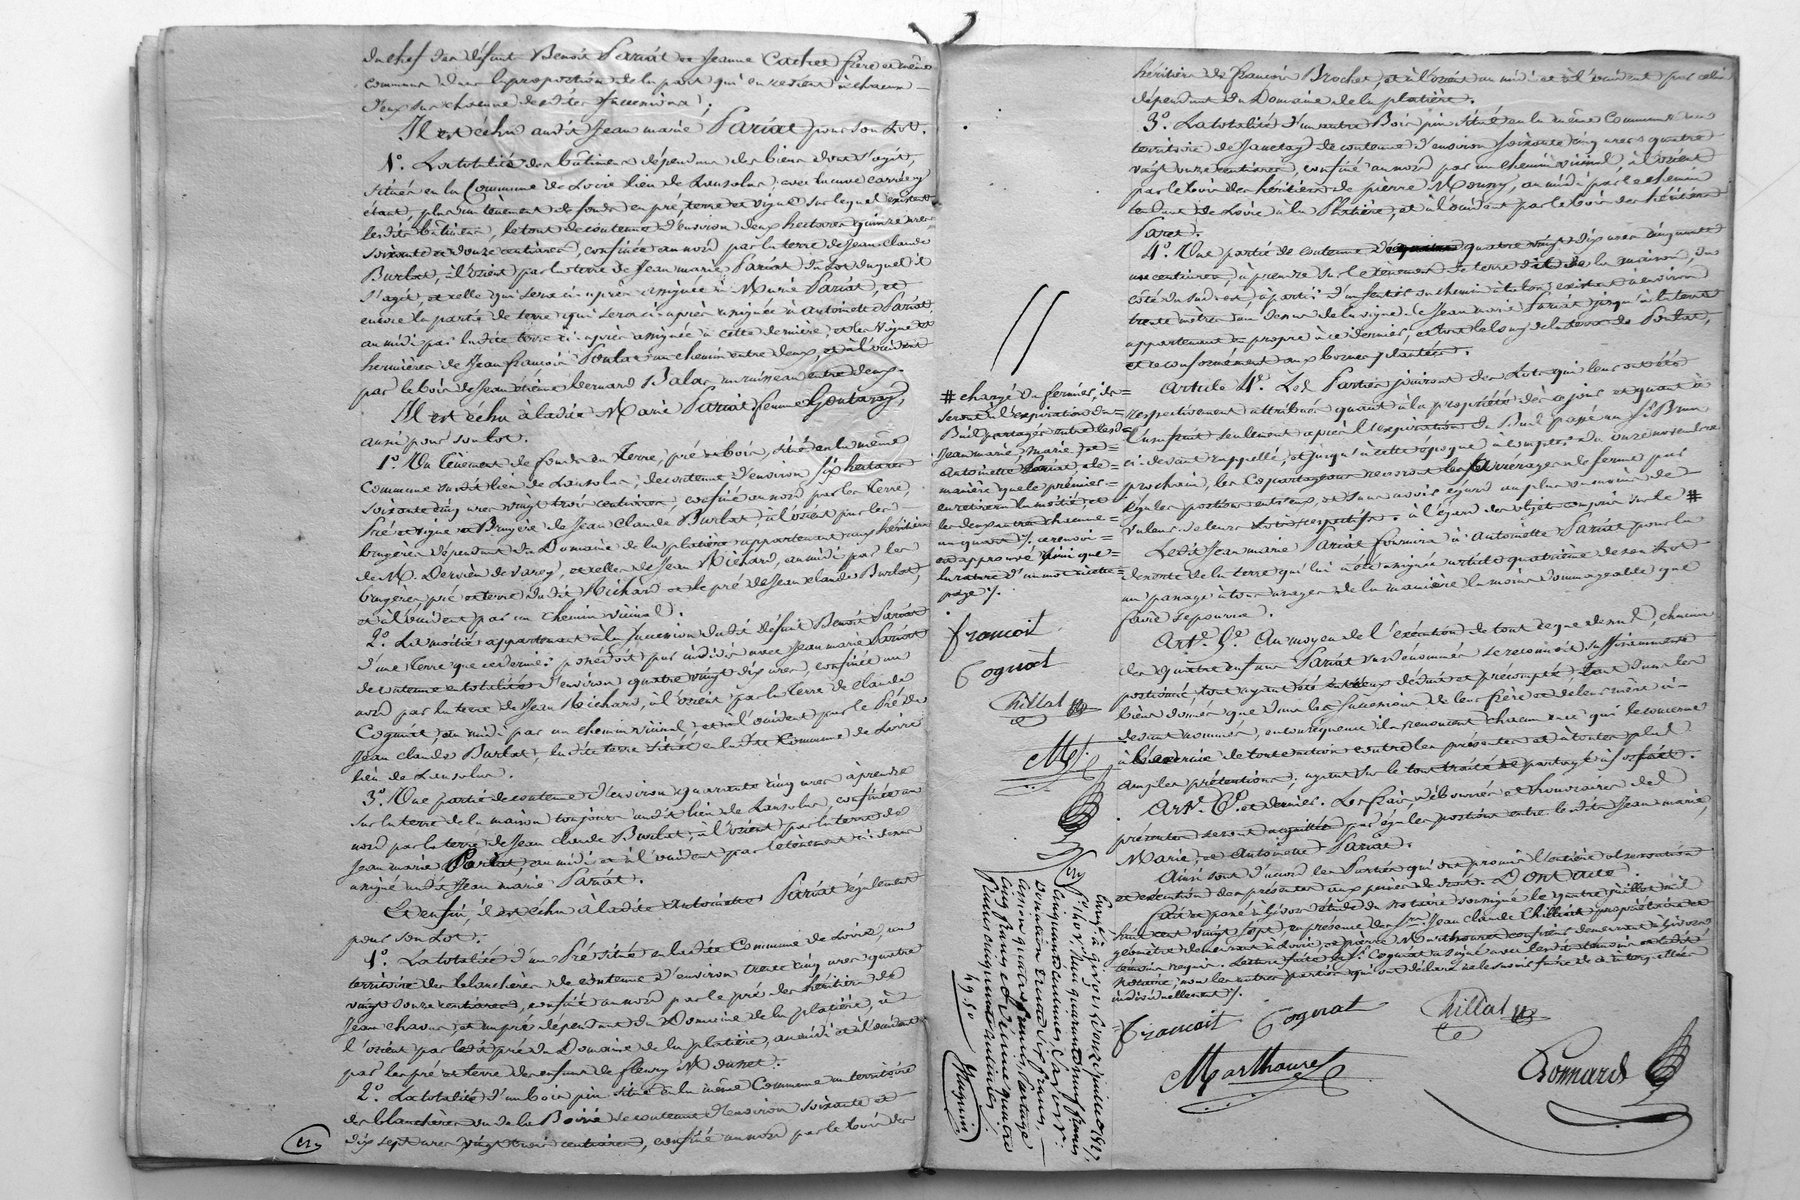 du chef des défunt Benoit Pariat et Jeanne Cachet frère et mère
commune dans la proportion de la part qui en revient à chacun
d'eux sur chacune desdites successions;
Il est échu audit Jean marie Pariat pour son Lot.
1º. La totalité des bâtimens dépendans des biens dont s'agit,
situés en la Commune de Loire lieu de Lansolus, avec la cuve
étant, plus un tènement de fonds en pré, terre et vigne sur lequel existent
lesdits bâtimens, le tout de contenue d'environ deux hectares quinze ares
soixante et douze centiares, confinée au nord par la terre de Jean Claude
Burlat, à l'orient par la terre de Jean marie Pariat du Lot duquel il
s'agit, et celle qui sera ci-après assignée à Marie Pariat, et
encore la partie de terre qui sera ci-après assignée à Antoinette Pariat,
au midi par ladite terre ci-après assignée à cette dernière et les vigne et
hermières de Jean François Poulat un chemin entre deux, et à l'occident
par le bois de Jean Bernard Balas, un ruisseau entre deux.
Il est échu à ladite Marie Pariat femme
aussi pour son lot.
1º. Un tènement de fonds en Terre, pré et bois, situé en la même
Commune susdit lieu de Lansolus, de contenue d'environ six hectares
soixante cinq ares vingt trois centiares, confiné au nord par les Terre,
Pré et vigne et Bruyère de Jean Claude Burlat, à l'orient par les
bruyères dépendant du Domaine de la platière appartenant aux héritiers
de M. Dervieu de Varey, et celles de Jean Richard, au midi par les
bruyères pré et terre dudit Richard et le pré de Jean claude Burlat,
et à l'occident par un chemin vicinal.
2º. La moitié appartenant à la succession dudit défunt Benoit Pariat
d'une terre que ce dernier possédoit par indivis avec Jean marie Pariat
de contenue en totalité d'environ quatre vingt dix ares confinée au
nord par la terre de Jean Richard, à l'orient par la terre de Claude
Cognat, au midi par un chemin vicinal, et à l'occident par le Pré de
Jean claude Burlat, ladite terre située en ladite Commune de Loire
lieu de Lansolus.
3º. Une partie de contenue d'environ quarante cinq ares à prendre
sur la terre de la maison toujours audit lieu de Lansolus, confinée au
nord par la terre de Jean claude Burlat, à l'orient par la terre de
Jean marie Pariat, au midi et à l'occident par le tènement ci-dessus
assigné audit Jean marie Pariat.
Et enfin, il est échu à ladite Antoinette Pariat également
pour son Lot.
1º. La totalité d'un Pré situé en ladite Commune de Loire, au
territoire des blanchères de contenue d'environ trente cinq ares quatre
vingt onze centiares, confiné au nord par le pré des héritiers de
Jean chavas et un pré dépendant du Domaine de la platière, à
l'orient par ledit pré du Domaine de la platière, au midi et à l'occident
par les pré et terre des enfans de fleury
2º. La totalité d'un bois pin situé en la même Commune au territoire
des blanchères ou de la Boirie de contenue d'environ soixante et
dix sept ares vingt trois centiares, confiné au nord par le bois des
héritiers de françois Brochet, et à l'orient au midi et à l'occident par celui
dépendant du Domaine de la platière.
3º. La totalité d'un autre Bois pin situé en la même Commune au
territoire de de contenue d'environ soixante cinq ares quatre
vingt onze centiares, confiné au nord par un chemin vicinal à l'orient
par le bois des héritiers de pierre Mouny, au midi par le chemin
tendant de Loire à la Platière, et à l'occident par le bois des héritiers
Paret.
4º. Une partie de contenue de quatre vingt dix ares cinquante
centiares, à prendre sur le tènement de terre dit de la maison, du
côté du sud-est à partir d'un sentier ou chemin à talon existant à environ
trente mètres au dessus de la vigne de Jean marie Pariat jusqu'à la terre
appartenant en propre à ce dernier, et tout le long de la terre de Poulat,
et ce conformément aux bornes plantées.
Article 4e. Les Parties jouiront des Lots qui leur ont été
respectivement attribués quant à la propriété dès ce jour et quant à
l'usufruit seulement après l'expiration du Bail passé au Sr. Brun
ci-devant rappellé, et jusqu'à cette époque à compter du onze novembre
prochain, les Copartageans recevront les arrérages de ferme par
égales portions entr'eux, et sans avoir égard au plus ou moins de
valeur de leurs Lots respectifs. à l'égard des objets compris sur le #
Ledit Jean marie Pariat fournira à Antoinette Pariat pour la
desserte de la terre qui lui a été assignée article quatrième de son Lot
un passage à tous usages de la manière la moins dommageable que
faire se pourra.
Art. 5e. Au moyen de l'exécution de tout ce que dessus, chacun
des quatre enfans Pariat susdénommés se reconnoit suffisamment
portionné tout ayant été entr'eux déduit et précompté, tant dans les
biens donnés que dans les Successions de leur frère et de leur mère ci-
devant nommés, en conséquence ils renoncent chacun en ce qui le concerne
à l'exercice de toute action contre les présentes et à toutes plus
amples prétentions, ayant sur le tout traité et partagé à forfait.
Art. 6e. et dernier. Les frais, déboursés et honoraires des
présentes seront acquittés par égales portions entre lesdits Jean marie,
Marie, et Antoinette Pariat.
Ainsi sont d'accord les Parties qui ont promis l'entière observation
et exécution des présentes aux peines de droit. Dont acte.
fait et passé à Givors étude du notaire soussigné le quatre juillet mil
huit cent vingt sept, en présence de Srs. Jean claude Chillat propriétaire et
géomètre demeurant à Loire, et pierre Marthouret confiseur demeurant à Givors
témoins requis. Lecture faite le Sr. Cognat a signé avec lesdits témoins et ledit
Notaire, non les autres parties qui ont déclaré ne le savoir faire de ce interpellées
individuellement ./.
Francoit Cognat Chillat
Marthouret Ponnard
# chargé du fermier, ils
seront à l'expiration du
Bail partagés entre lesd.
Jean marie, Marie, et
Antoinette Pariat, de
manière que le premier
en retirera la moitié, et
les deux autres chacune
un quart ./. ce renvoi
est approuvé ainsi que
la rature d'un mot cette
page ./.
francoit
Cognat
Chillat
Enregt. à givors le onze juillet 1827,
fo. 140 v. Reçu quarante neuf francs
cinquante centimes, Savoir:
Donation trente six francs,
cession quatre francs, Partage
cinq francs et décime quatre
francs cinquante centimes.
49. 50